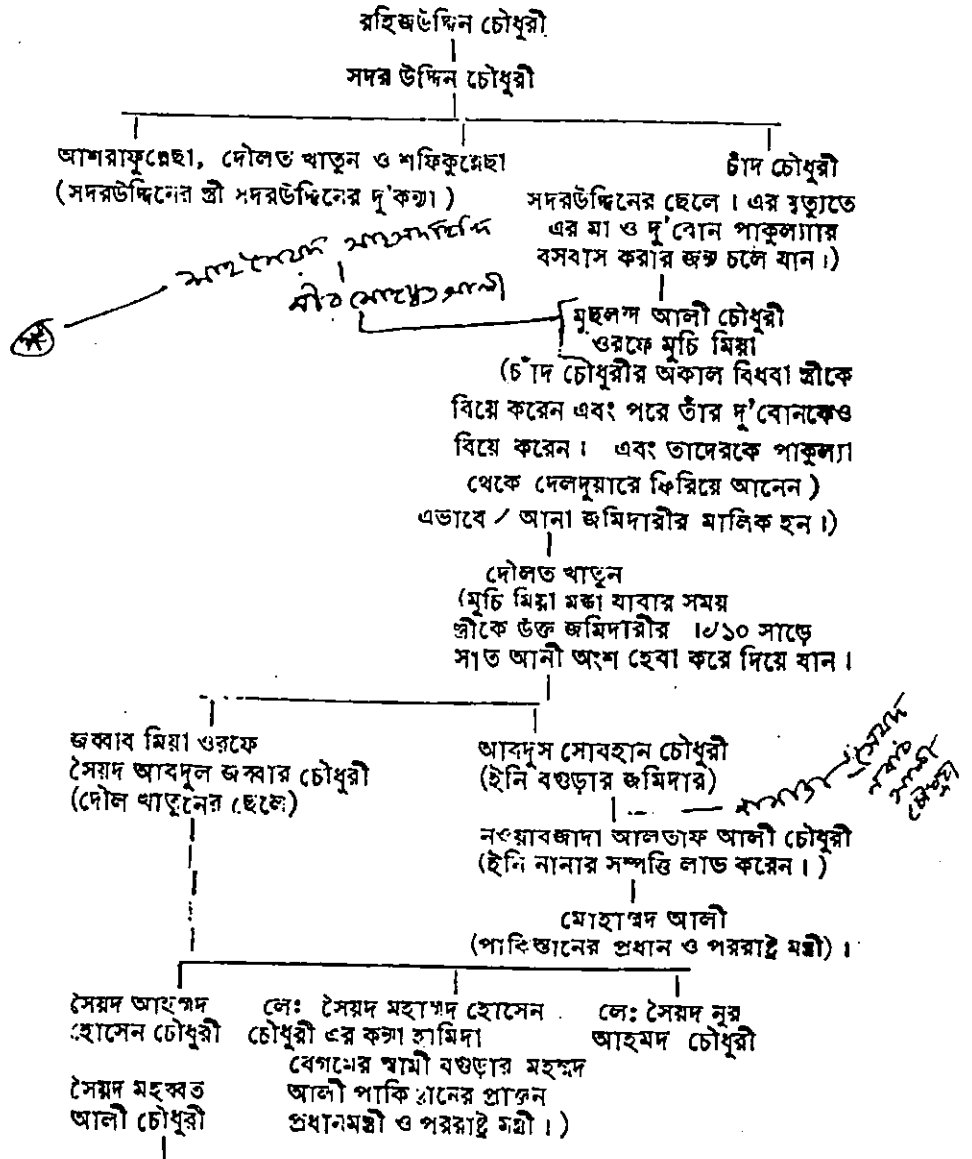 রহিজউদ্দিন চৌধুরী
সদর উদ্দিন চৌধুরী
আশরাফুন্নেছা, দৌলত খাতুন ও শফিকুন্নেছা
(সদরউদ্দিনের স্ত্রী সদরউদ্দিনের দু'কন্যা)
চাঁদ চৌধুরী
সদরউদ্দিনের ছেলে । এর মৃত্যুতে
এর মা ও দু'বোন পাকুল্যার
বসবাস করার জন্য চলে যান ।)
মুছলন্দ আলী চৌধুরী
ওরফে মুচি মিয়া
(চাঁদ চৌধুরীর অকাল বিধবা স্ত্রীকে
বিয়ে করেন এবং পরে তাঁর দু'বোনকেও
বিয়ে করেন । এবং তাদেরকে পাকুল্যা
থেকে দেলদুয়ারে ফিরিয়ে আনেন)
এভাবে ৴ আনা জমিদারীর মালিক হন ।)
দৌলত খাতুন
(মুচি মিয়া মক্কা যাবার সময়
স্ত্রীকে উক্ত জমিদারীর ।৶১০ সাড়ে
সাত আনী অংশ হেবা করে দিয়ে যান ।
জব্বাব মিয়া ওরফে
সৈয়দ আবদুল জব্বার চৌধুরী
(দৌল খাতুনের ছেলে)
আবদুস সোবহান চৌধুরী
(ইনি বগুড়ার জমিদার)
সৈয়দ
নবাব
আলী
চৌধুরী
নওয়াবজাদা আলতাফ আলী চৌধুরী
(ইনি নানার সম্পত্তি লাভ করেন ।)
মোহাম্মদ আলী
(পাকিস্তানের প্রধান ও পররাষ্ট্র মন্ত্রী) ।
সৈয়দ আহম্মদ
হোসেন চৌধুরী
সৈয়দ মহব্বত
আলী চৌধুরী
লেঃ সৈয়দ মহাম্মদ হোসেন
চৌধুরী এর কন্যা হামিদা
বেগমের স্বামী বগুড়ার মহম্মদ
আলী পাকিস্তানের প্রাক্তন
প্রধানমন্ত্রী ও পররাষ্ট্র মন্ত্রী ।)
লেঃ সৈয়দ নুর
আহমদ চৌধুরী